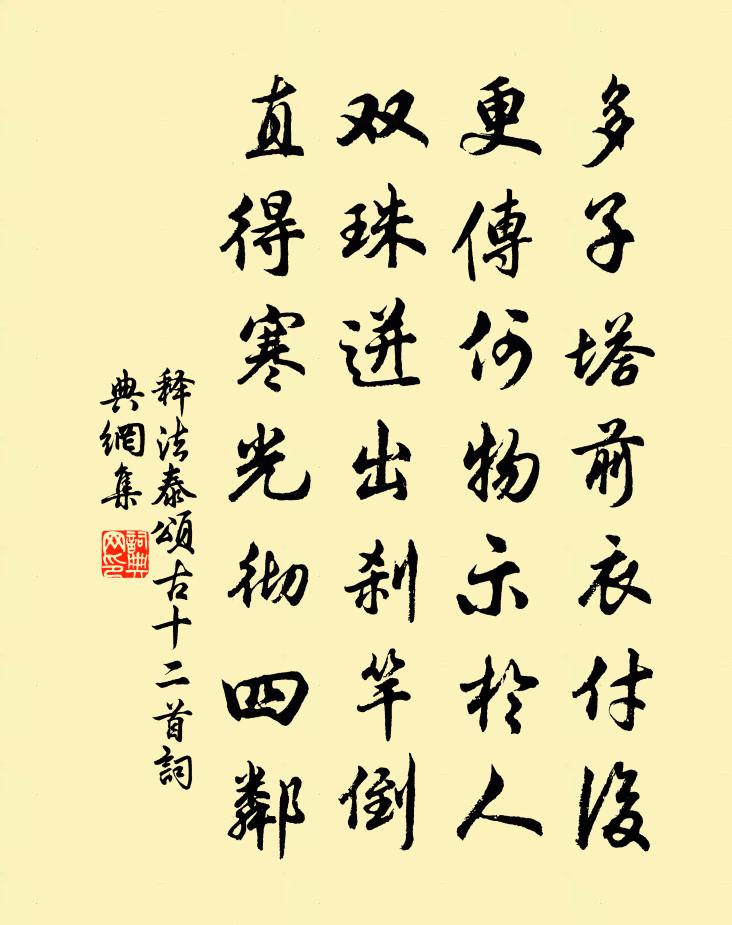 多子塔前衣付後
更傳何物示於人
双珠迸出刹竿倒
直得寒光彻四鄰
释法泰頌古十二首詞
典網集
詞典
网印